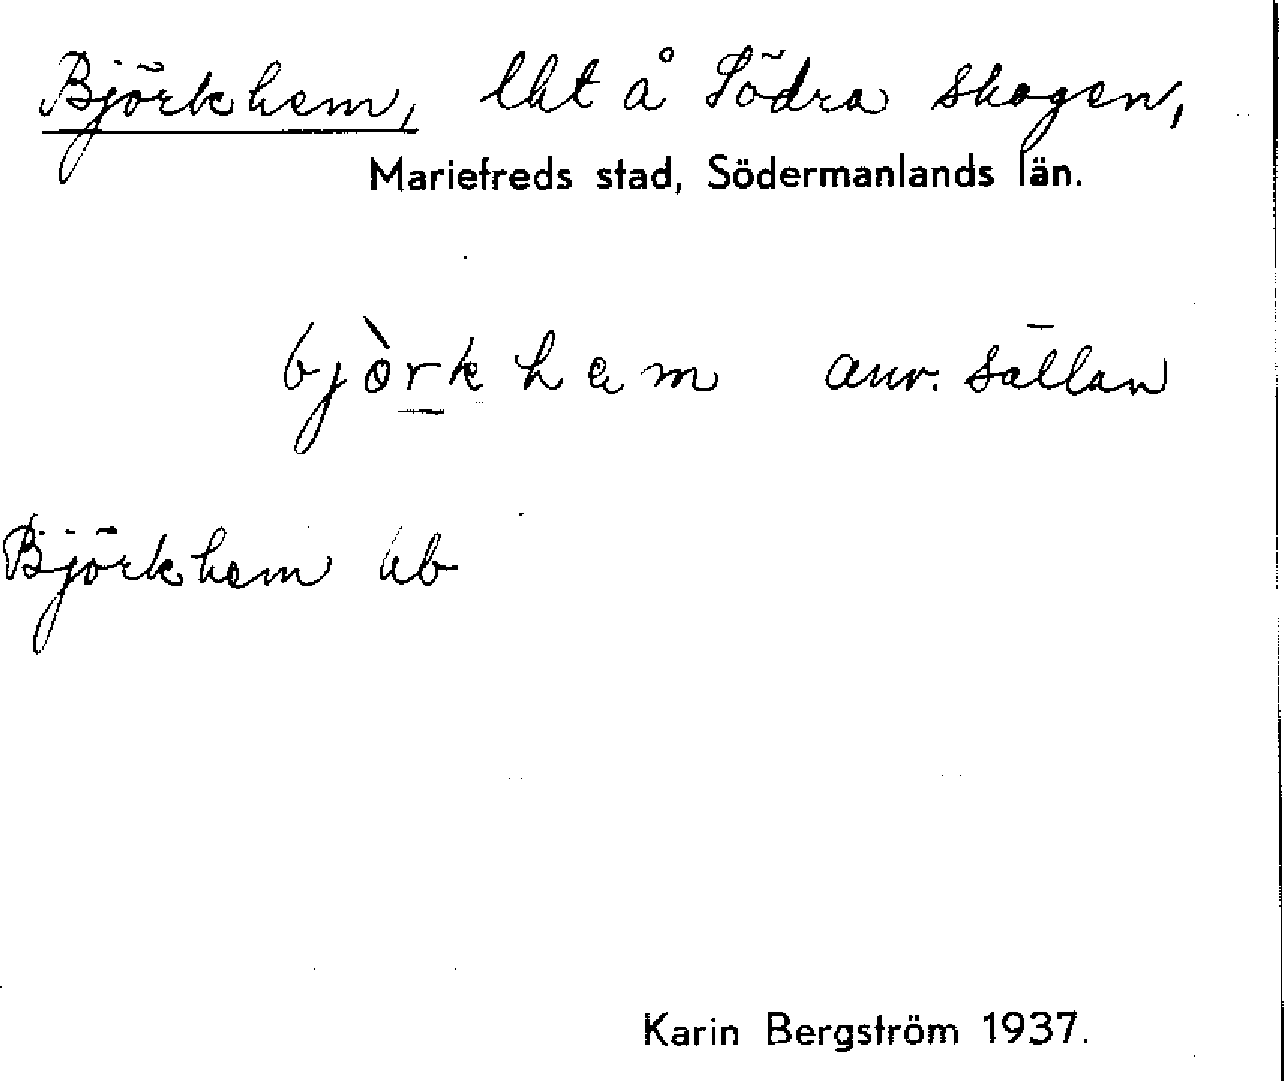 Björkhem, lht å Södra skogen,
Mariefreds stad, Södermanlands län.
bjòrkhem anv. sällan
Björkhem ab